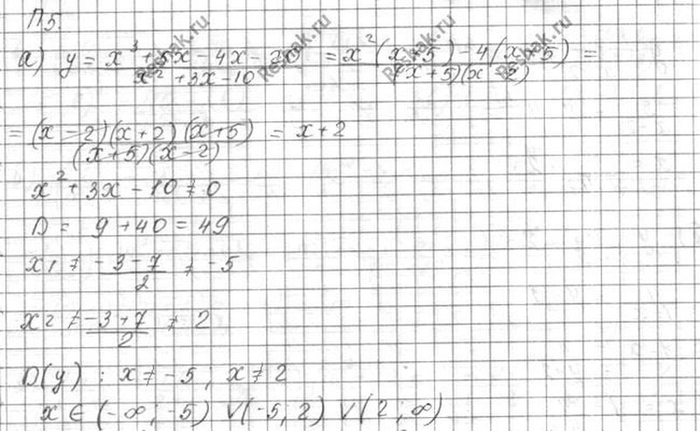 П5.
а) y = x³ + 5x - 4x - 20 / x² + 3x - 10 = x²(x + 5) - 4(x + 5) / (x + 5)(x - 2) =
= (x - 2)(x + 2)(x + 5) / (x + 5)(x - 2) = x + 2
x² + 3x - 10 ≠ 0
D = 9 + 40 = 49
x1 ≠ -3 - 7 / 2 ≠ -5
x2 ≠ -3 + 7 / 2 ≠ 2
D(y) : x ≠ -5 ; x ≠ 2
x ∈ (-∞ ; -5) ∨ (-5 ; 2) ∨ (2 ; ∞)
Reshak.ru
Reshak.ru
Reshak.ru